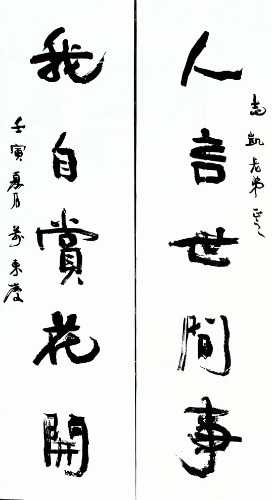 志凱老弟正之
人言世間事
我自賞花開
壬寅夏月東慶